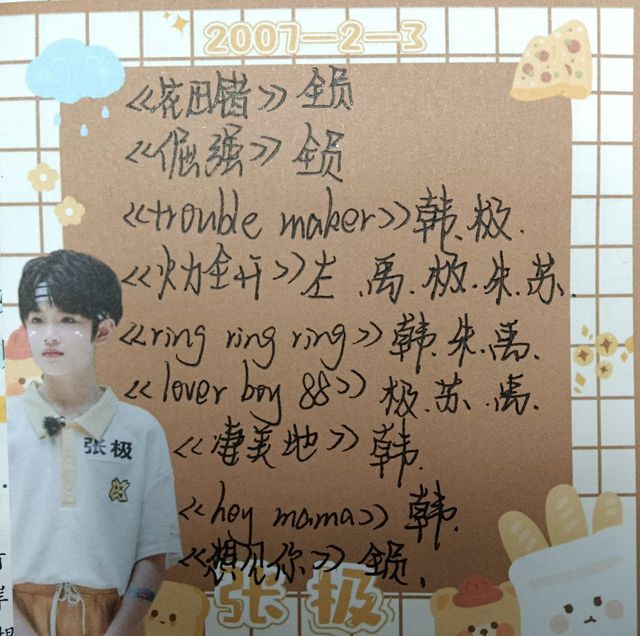 2007—2—3
《花田错》全员
《倔强》全员
《trouble maker》韩、极.
《火力全开》左、禹、极、朱、苏.
《ring ring ring》韩.朱.禹.
《lover boy 88》极.苏.禹.
《凄美地》韩.
《hey mama》韩.
《想见你》全员.
张极
张极